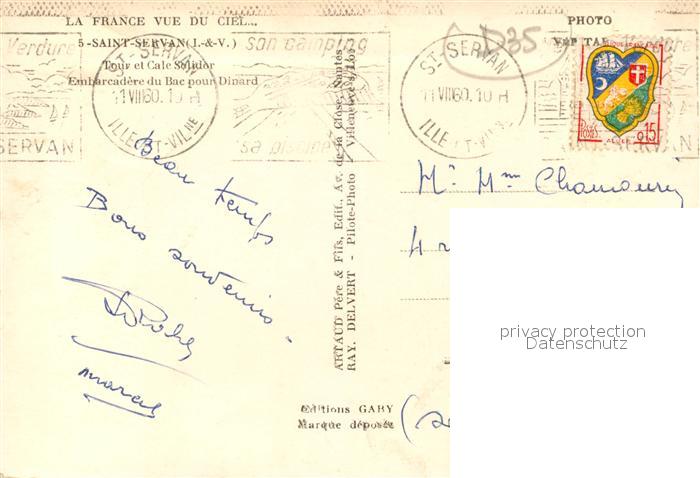 LA FRANCE VUE DU CIEL...
PHOTO
5-SAINT-SERVAN (I.-&-V.)
Tour et Cale Solidor
Embarcadère du Bac pour Dinard
Verdure
SERVAN
ST SERVAN
11 VIII 60. 10 H
ILLE-ET-VILNE
son camping
sa piscine
D35
ST SERVAN
11 VIII 60. 10 H
ILLE-ET-VILNE
POSTES
0,15
ALGER
Beau temps
Bons souvenirs
ARTAUD Père & Fils, Edit., Av. de la Close, Nantes
RAY. DELVERT - Pilote-Photo - Villeneuve-s/Lot
Mr Mme
4
Editions GABY
Marque déposée
privacy protection
Datenschutz